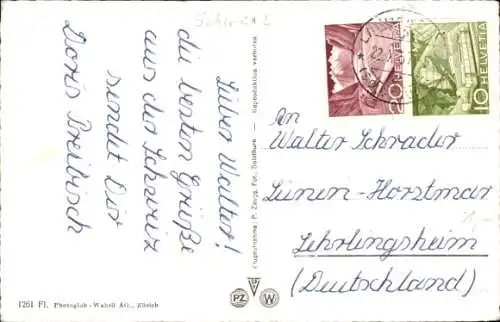 Lieber Walter!
die besten Grüße
aus der Schweiz
sendet Dir
Doris Breibisch
An
Walter Schrader
Lünen-Horstmar
Lehrlingsheim
(Deutschland)
20 HELVETIA
10 HELVETIA
Flugaufnahme P. Zaugg, Fot. Solothurn - Reproduktion verboten
PZ
W
1261 Fl. Photoglob-Wehrli AG., Zürich